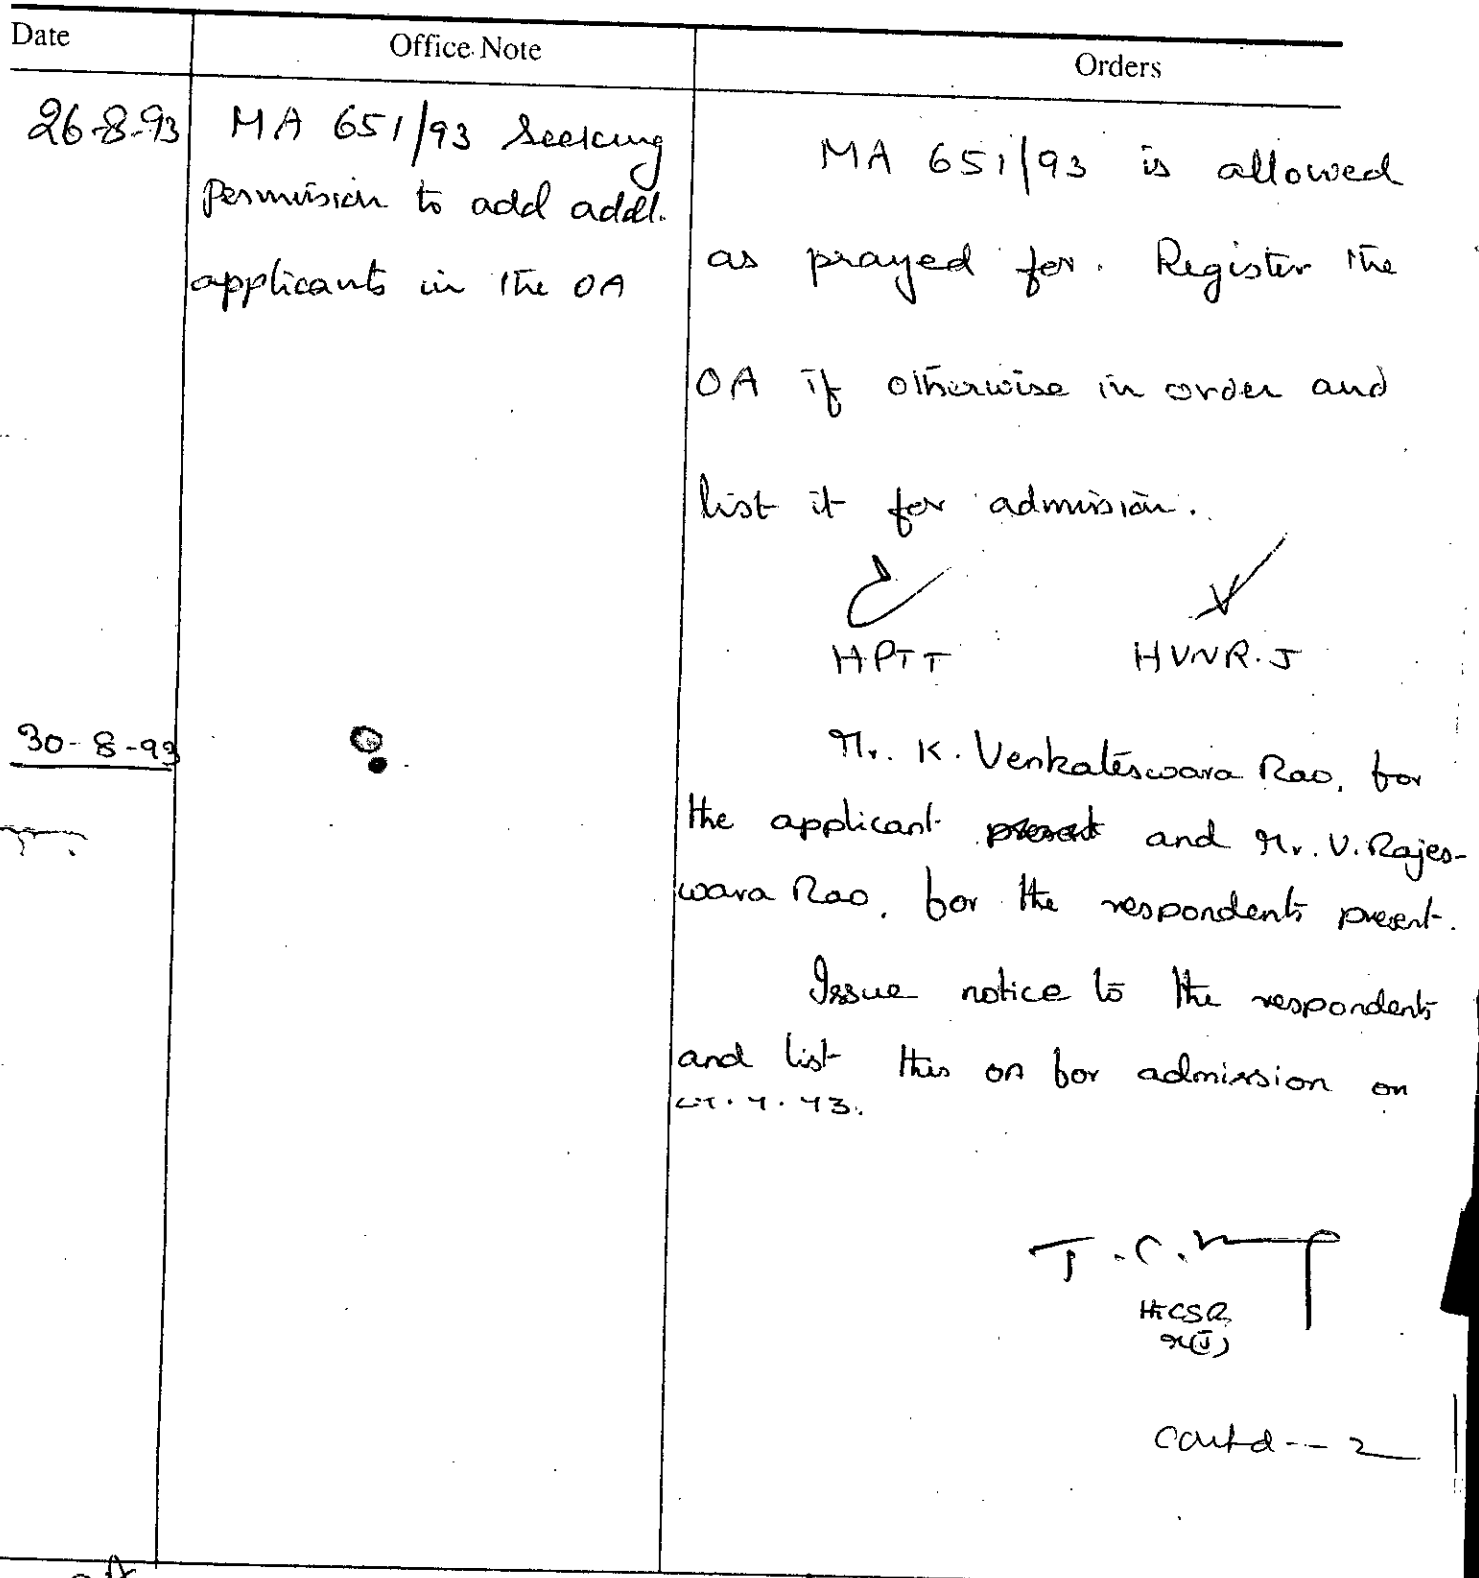 Date Office Note Orders
26-8-93 MA 651/93 Seeking
permission to add addl.
applicants in the OA
MA 651/93 is allowed
as prayed for. Register the
OA if otherwise in order and
list it for admission.
HPTT HVNR.J
30-8-93
Mr. K. Venkateswara Rao, for
the applicant present and Mr. V. Rajes-
wara Rao, for the respondents present.
Issue notice to the respondents
and list this on for admission on
HTCSR
M(J)
Contd -- 2